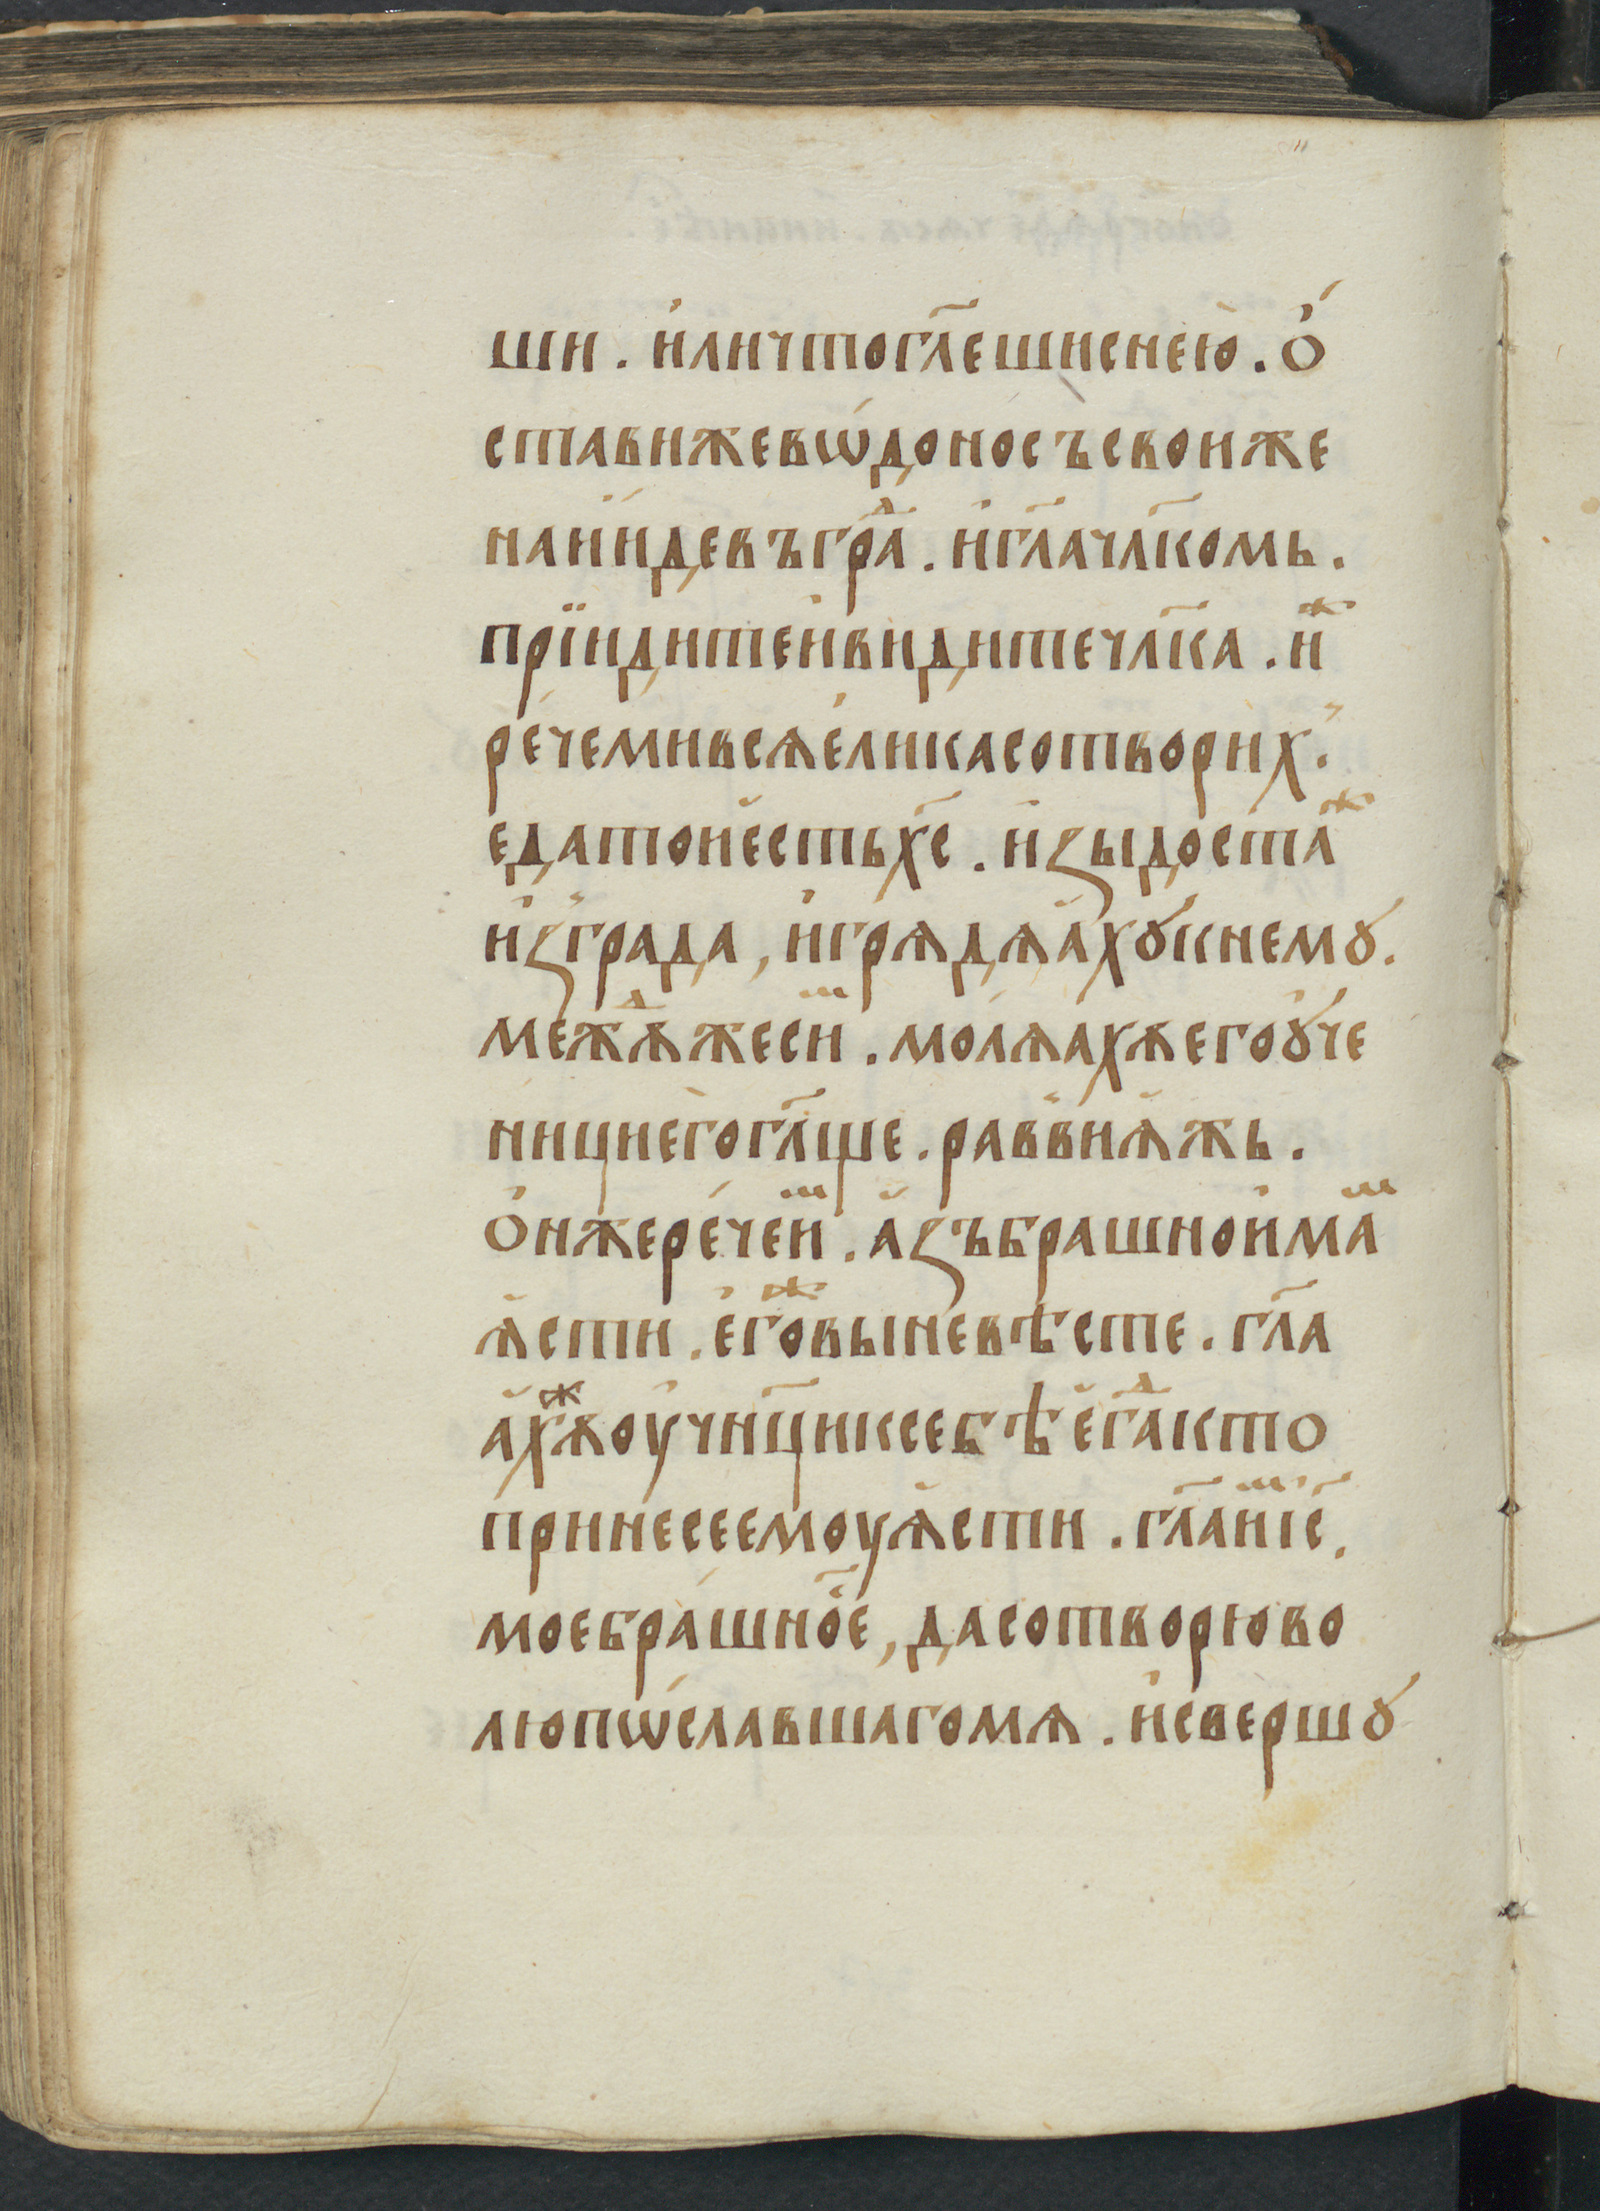 ши . и҆личтогл҃ешиснею̀ . О҆́
ставижевѡ́доносъсвоиже
наи҆́идевъгра̑ⷣ . и҆гл҃ачл҃комь .
прїидитеи҆видитечл҃ка . иⷤ҆
ре́чемивсѧе҆ликасотворих .̾
едатои҆е҆стьх҃с . и҆зыдостаⷤ
и҆з̾града , и҆грѧдѧ́а҆хꙋкнемꙋ .
межѧⷣ҇жесиⷨ . молѧахѫегоꙋ҆́че
ницие҆гогл҃ще . равви҆ꙗжь .
О҆нжере́чеиⷨ . а҆зъбрашнои҆маⷨ
ꙗ҆сти . е҆гоⷤвыневѣсте . гл҃а
а҆хѫⷤоу҆чн҃циксебѣе҆гаⷣ҇кто
прине́сеемоуꙗ҆сти . гл҃аиⷨі҆с҃ .
моебра́шно҆́е , дасотворюво
люпѡ́славшагомѧ . и҆свершꙋ